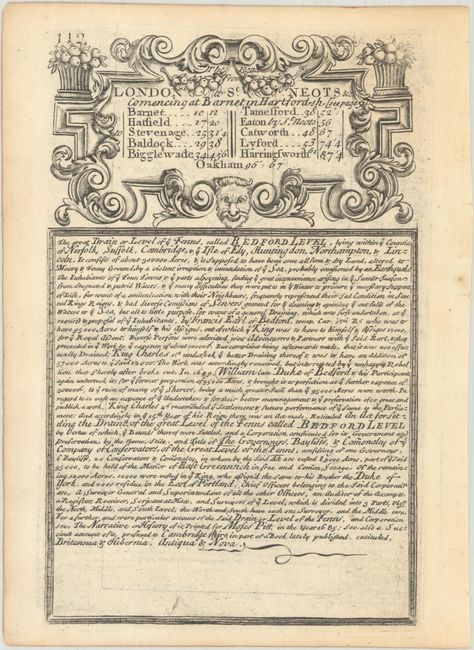 112
The Road
from
LONDON to St. NEOTS &c.
Comencing at Barnet in Hartfordsh. (see page
Barnet 10 12
Hatfield 17 20
to Stevenage 25 31 4
Baldock 29 38
Bigglewade 34 4 45 6
Tamesford 38 52
Eaton by St. Neots 56
Catworth 48 67
Lyford 53 74 4
Harringsworth 87 4
Oakham 96 67
The great Drain or Level of ye Fenns, called BEDFORD LEVEL, lying within ye Counties
of Norfolk, Suffolk, Cambridge, & ye Isle of Ely, Huntingdon, Northampton, & Lin-
coln. It consists of about 300000 Acres, & is supposed to have been once all firm & dry Land, altered to
Moory & Fenny Ground by a violent irruption & inundation of ye Sea, probably occasioned by an Earthquake.
The Inhabitants of ye Fenn Towns & ye parts adjoyning, finding ye great inconvenience arising in ye Summer Season
from Stagnated & putrid Waters, & ye many difficulties they were put to in ye Winter to procure ye necessary Support
of Life, for want of a communication with their Neighbours, frequently represented their Sad Condition in Seve-
ral Kings Reigns, & had divers Comissions of Sewers granted for ye cleansing & opening ye outfalls of the
Waters to ye Sea, but all to little purpose, for want of a general Draining, which was first undertaken at ye
request & proposal of ye Inhabitants, by Francis Earl of Bedford, temp. Car. 1mi Rs. who was to
have 95000 Acres to himself & his Assigns, out of which ye King was to have to himself & Assigns 12000,
for ye Royal Assent. Divers Persons were admitted joint Adventurers & Partners with ye Said Earl, & they
proceeded in ye Work to ye expence of about 100000£. But complaint being afterwards made, that it was not effec-
tually Drained; King Charles 1st. undertook ye better Draining thereof & was to have an Addition of
57000 Acres to ye Said 12000. The Work was accordingly renewed, but interrupted by ye unhappy Rebel-
lion that shortly after broke out. In 1649, William late Duke of Bedford & his Participants
again undertook its for ye former proportion of 95000 Acres, & brought it to perfection at ye further expence of
300000£, to ye ruin of many of ye Sharers, being a much greater Sum than ye 95000 Acres were worth. In
regard to so vast an expence of ye Undertakers & for their better encouragement & ye preservation of so great and
publick a work, King Charles 2d. recomended ye Settlement & future performance of ye Same to the Parlia-
ment. And accordingly in ye 15th Year of his Reign there was an Act made, Entituled An Act for set-
ling the Draining of the great Level of the Fenns called BEDFORD LEVEL
by Vertue of which, ye Said Work were Settled, and a Corporation constituted for its Government and
preservation, by the Name, Stile, and Title of The Governour, Bayliffs, & Comonalty of ye
Company of Conservators, of the Great Level of the Fenns, consisting of one Governour,
6 Bayliffs, 20 Conservators & Comonalty, in whom by the Said Act are vested 83000 Acres, part of ye Said
95000, to be held of the Manor of East Greenwich in free and Comon Socage. Of the remain-
ing 12000 Acres, 10000 were vested in ye King, who assigned the same to his Brother the Duke of
York, and 2000 residue in the Earl of Portland. Chief Officers belonging to the Said Corporation
are, a Surveyor General and Superintendant of all the other Officers, an Auditor of the Accompts,
a Register, Receiver, Serjeant at Mace, and Surveyors of ye Level, which is divided into 3 Parts, vizt.
the North, Middle, and South Level; the North and South have each one Surveyor, and the Middle two.
For a further, and more particular account of the Said Drain or Level of the Fenns, and Corporation
see The Narrative, or History of it, Printed for Moses Pitt, in the Year 1685. See also a Suc-
cinct account of it, prefixed to Cambridge Shire, in part of a Book lately published, entituled,
Britannia & Hibernia, Antiqua & Nova.